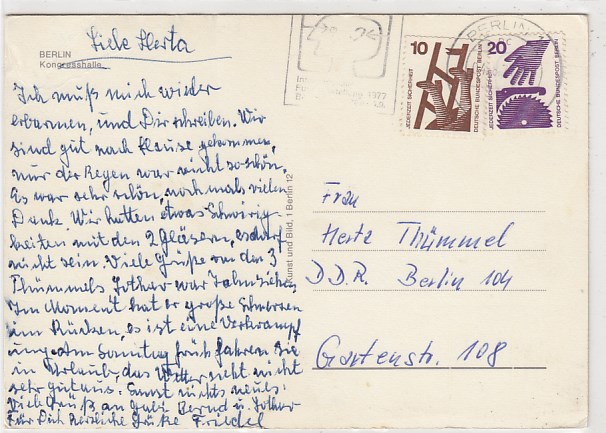 Liebe Herta
BERLIN
Kongresshalle
Ich muß mich wieder
erbarmen, und Dir schreiben. Wir
sind gut nach Hause gekommen,
nur der Regen war nicht so schön.
Es war sehr schön, noch mal vielen
Dank. Wir hatten etwas Schwierig-
keiten mit den 2 Gläsern, es darf
nicht sein. Viele Grüße von den 3
Thümmels Lothar war Zahn ziehen
Im Moment hat er große Schmerzen
im Rücken, es ist eine Verkrampf
ung. Am Sonntag früh fahren sie
in Urlaub, das Wetter sieht nicht
sehr gut aus. Sonst nichts neues.
Viele Grüße an Gabi Bernd u. Lothar
Für Dich herzliche Grüße Friedel
Kunst und Bild, 1 Berlin 12
1977
BERLIN
10
JEDERZEIT SICHERHEIT
DEUTSCHE BUNDESPOST BERLIN
20
JEDERZEIT SICHERHEIT
DEUTSCHE BUNDESPOST BERLIN
Frau
Herta Thümmel
D.D.R. Berlin 104
Gartenstr. 108